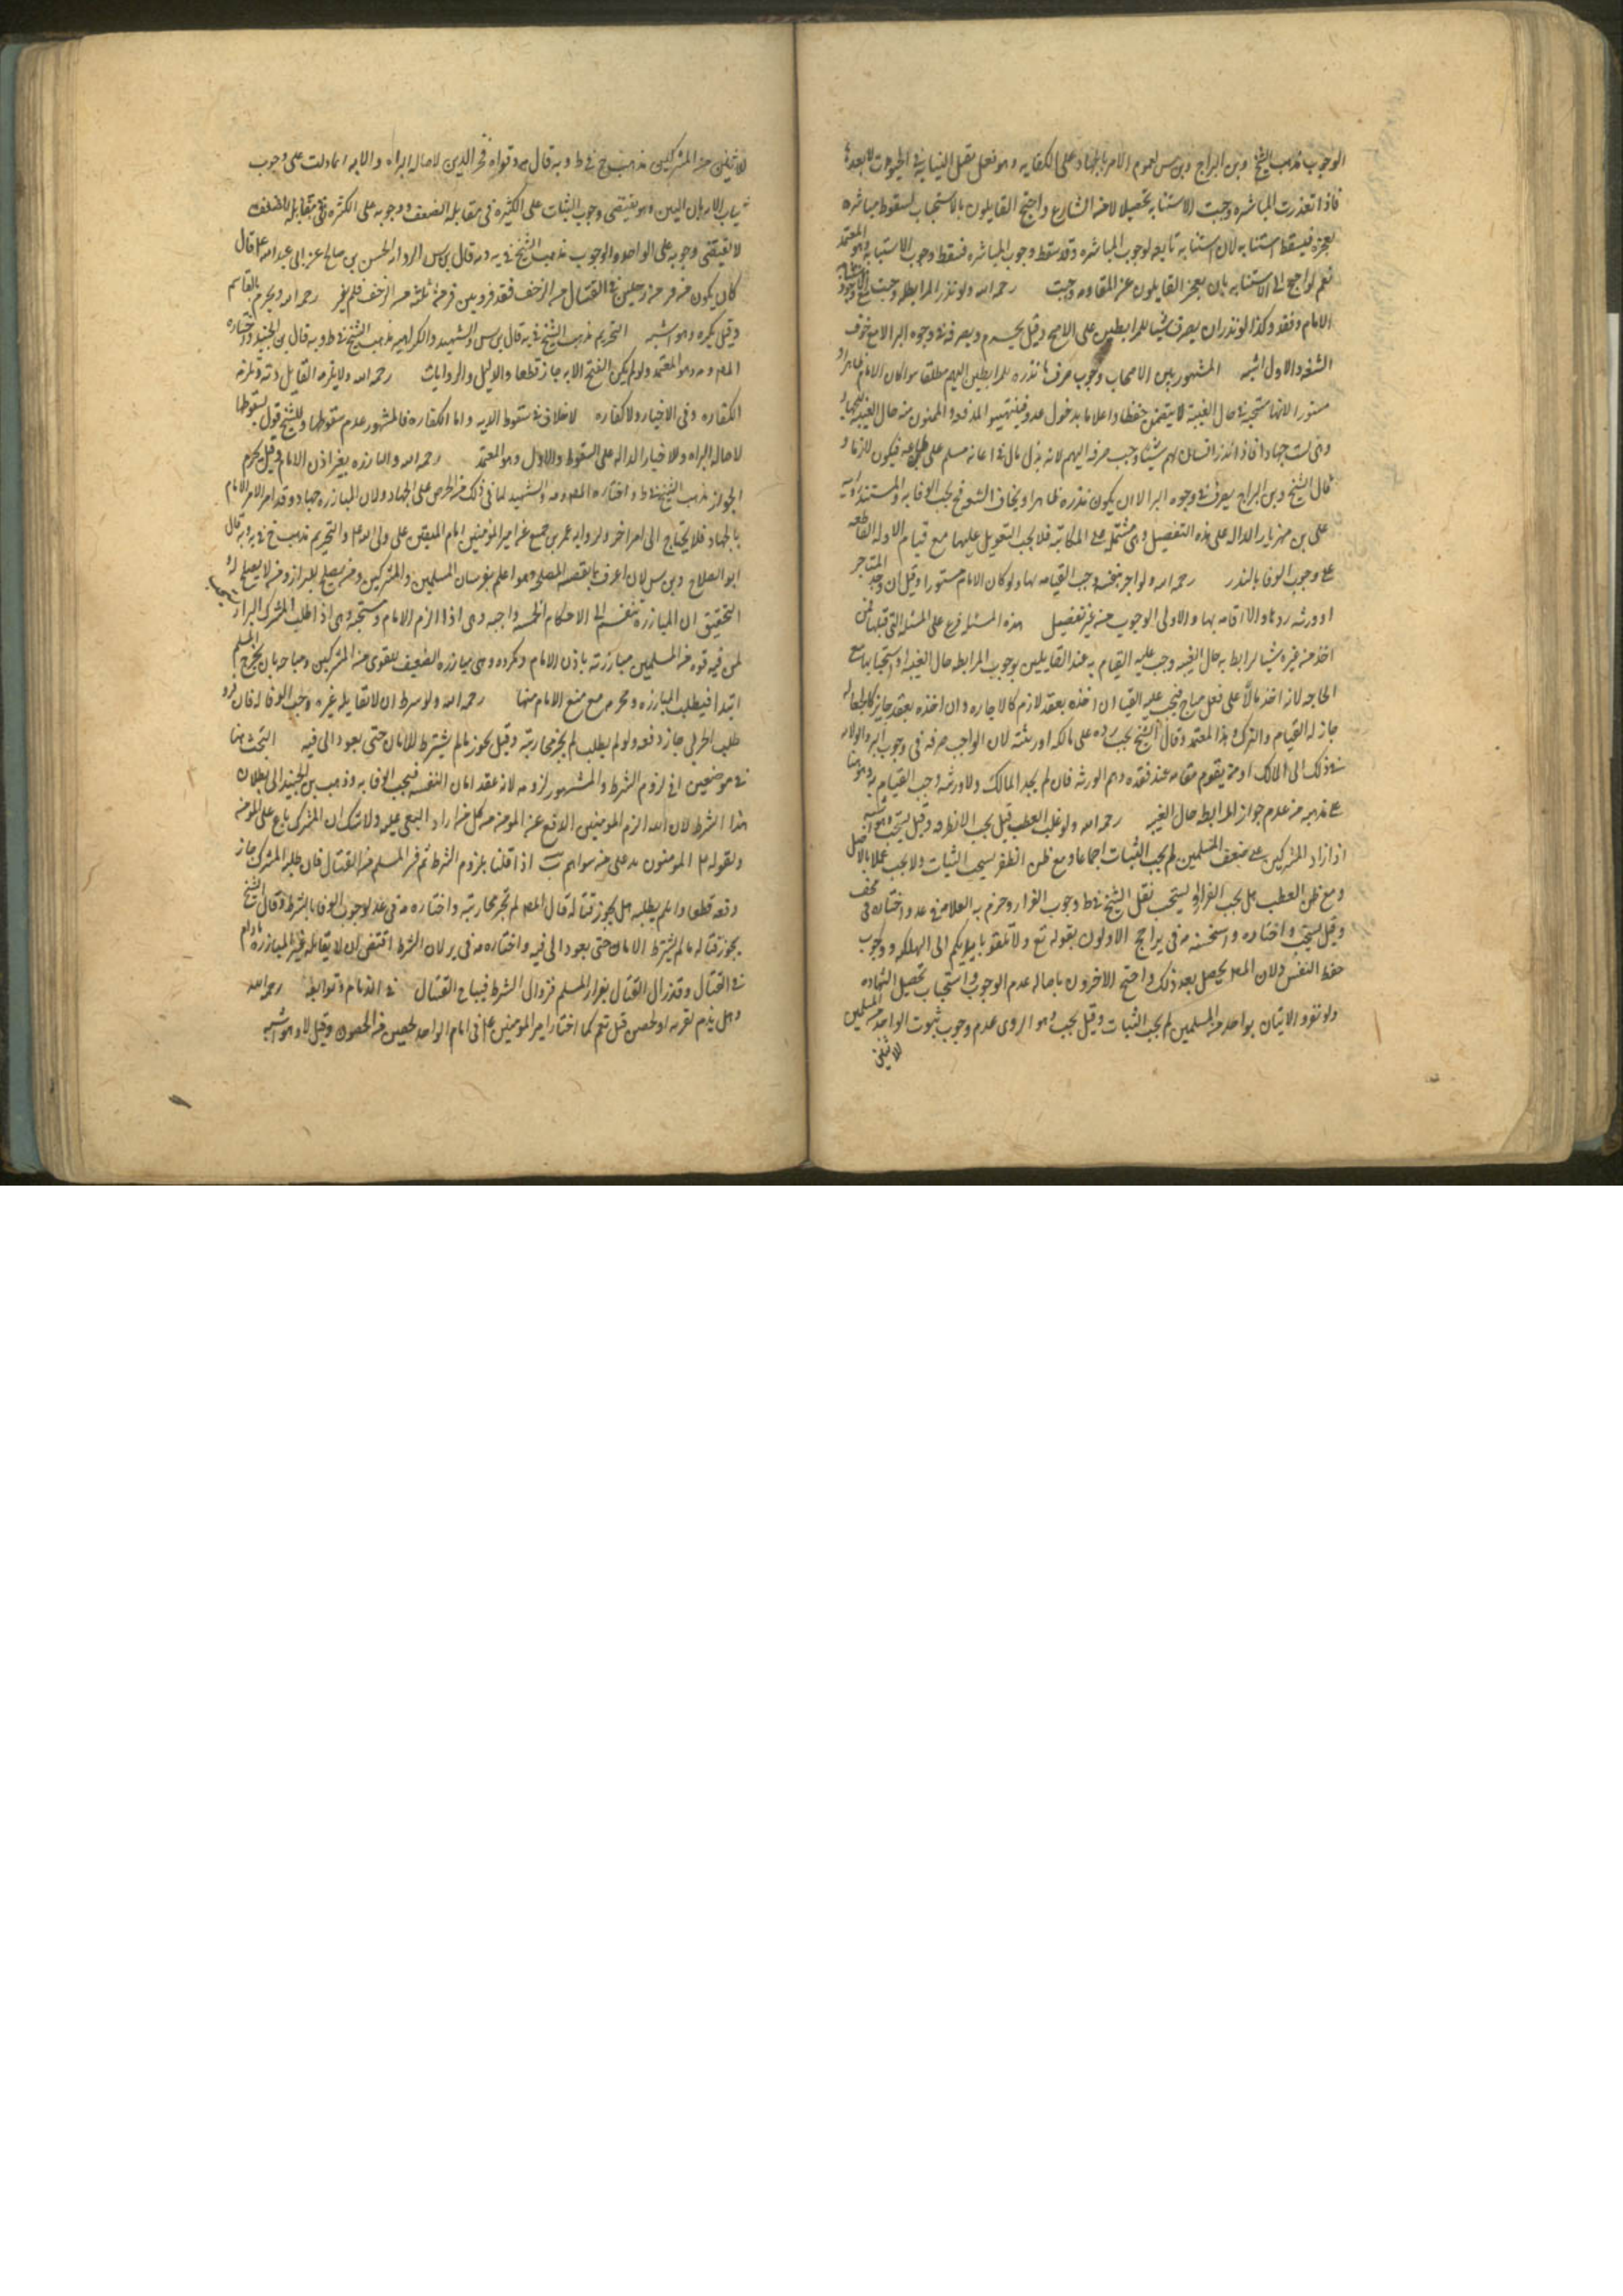 الوجوب مذهب الشيخ وبن البراج وبن س لعموم الامر بالجهاد على الكفايه وهو فعل يقبل النيابه في الحيوة
فاذا تعذرت المباشره وجبت الاستنابه تحصيلا لاغرض الشارع واحتج القايلون بالاستحباب لسقوط مباشره
بعجزه فيسقط استنابه لان استنابه تابعه لوجوب المباشره وقد سقط وجوب المباشره فسقط وجوب الاستنابه وهو المعتمد
نعم لو احتيج الى الاستنابه بان يعجز القايلون عن المقاومه وجبت رحمه الله ولو نذر المرابطه وجبت مع وجود
الامام وفقده وكذا لو نذر ان يصرف شيا للمرابطين على الاصح وقيل يحرم ويصرفه في وجوه البر الا مع خوف
الشنعه والاول اشبه المشهور بين الاصحاب وجوب صرف ما نذره للمرابطين اليهم مطلقا سوا كان الامام ظاهرا او
مستورا لانها مستحبه في حال الغيبه لا يتضمن حفظا واعلاما بدخول عدو فيتهييو المدفعه والممنوع منه حال الغيبه الجهاد
وهي ليست جهادا فاذا نذر انسان لهم شيئا وجب صرفه اليهم لانه بذل مال في اعانه مسلم على طاعه فيكون لازما و
قال الشيخ وبن البراج يصرف في وجوه البر الا ان يكون نذره ظاهرا ويخاف الشنعه فح يجب الوفا به والمستند روايه
على بن مهزيار الداله على هذه التفصيل وهي مشتمله على المكاتبه فلا يجب التعويل عليها مع قيام الادله القاطعه
على وجوب الوفا بالنذر رحمه الله ولو اجر نفسه وجب القيام بها ولو كان الامام مستورا وقيل ان وجد المستاجر
او ورثه ردها والا قام بها والاولى الوجوب من غير تفصيل هذه المسئله فرع على المسئله التي قبلها فمن
اخذ من غيره شيا ليرابط به حال الغيبه وجب عليه القيام به عند القايلين بوجوب المرابطه حال الغيبه او استحبابها مع
الحاجه لانه اخذ مالا على فعل مباح فيجب عليه القيام ان اخذه بعقد لازم كالاجاره وان اخذه بعقد جايز كالجعاله
جاز له القيام والترك هذا المعتمد وقال الشيخ يجب رده على مالكه او ورثته لان الواجب صرفه في وجوب البر والولايه
في ذلك الى المالك او من يقوم مقامه عند فقده وهم الورثه فان لم يجد المالك ولا ورثه وجب القيام به وهو بنا
على مذهبه من عدم جواز المرابطه حال الغيبه رحمه الله ولو غلب العطب قيل يجب الانصراف وقيل يستحب وهو اشبه
اذا زاد المشركين على ضعف المسلمين لم يجب الثبات اجماعا ومع ظن الظفر يستحب الثبات ولا يجب عملا بالاصل
ومع ظن العطب هل يجب الفرار او يستحب نقل الشيخ في ط وجوب الفرار وجزم به العلامه في عد واختاره في مختلف
وقيل يستحب واختاره واستحسنه في ير احتج الاولون بقوله تع ولا تلقوا بايديكم الى التهلكه ووجوب
حفظ النفس ولان المصلحه يحصل بعد ذلك واحتج الاخرون باصاله عدم الوجوب واستحباب تحصيل الشهاده
ولو تفرد الاثنان بواحد من المسلمين لم يجب الثبات وقيل يجب وهو المروى عدم وجوب ثبوت الواحد من المسلمين
للاثنين
للاثنين من المشركين مذهب خ في ط وبه قال وقواه فخر الدين لاصاله البراه والايه انما دلت على وجوب
ثبات الامرين وهو يقتضى وجوب الثبات على الكثره في مقابله الضعف ووجوبه على الكثره في مقابله الضعف
لا يقتضى وجوبه على الواحد والوجوب مذهب الشيخ في يه وبه قال بن س لروايه الحسن بن صالح عن ابى عبد الله ع قال
كان يكون من فر من رجلين في القتال من الزحف فقد فر ومن فر من ثلثه من الزحف فلم يفر رحمه الله ويحرم بالقاسم
وقيل يكره وهو اشبه التحريم مذهب الشيخ في يه قال بن س والشهيد والكراهيه مذهب الشيخ في ط وبه قال بن الجنيد واختاره
المص وهو المعتمد ولو لم يكن الفتح الا به جاز قطعا والدليل والروايات رحمه الله ولا يلزم القايل ديه ويلزمه
الكفاره وفي الاخبار ولا كفاره لا خلاف في سقوط الديه واما الكفاره فالمشهور عدم سقوطها وللشيخ قول بسقوطها
لاصاله البراه وللاخبار الداله على السقوط والاول وهو المعتمد رحمه الله والمبارزه بغير اذن الامام وقيل يحرم
الجواز مذهب الشيخ في ط واختاره المص والشهيد لما في ذلك من الحرص على الجهاد ولان المبارزه جهاد وقد امر الامام
بالجهاد فلا يحتاج الى امر اخر ولروايه عمر بن جميع عن امير المؤمنين امام المتقين على ولى الله ع والتحريم مذهب خ في يه وبه قال
ابو الصلاح وبن س لان اعرف بما يقتضيه المصلحه وهو اعلم بفرسان المسلمين والمشركين ومن يصلح للبراز ومن لا يصلح له
التحقيق ان المبارزه تنقسم الى الاحكام الخمسه واجبه وهي اذا الزم الامام ومستحبه وهي اذا طلب المشرك البراز
لمن فيه قوه من المسلمين مبارزته باذن الامام ومكروه وهي مبارزه الضعيف للقوى من المشركين ومباحه بان يخرج المسلم
ابتدا فيطلب المبارزه ومحرم مع منع الامام منها رحمه الله ولو شرط ان لا يقاتله غيره وجب الوفا له فان فر و
طلبه الحربى جاز دفعه ولو لم يطلبه لم يجز محاربته وقيل يجوز ما لم يشترط الامان حتى يعود الى فيه البحث هنا
في موضعين الاول في لزوم الشرط والمشهور لزومه لانه عقد امان لنفسه فيجب الوفا به وذهب بن الجنيد الى بطلان
هذا الشرط لان الله الزم المومنين الدفع عن المومن من كل من اراد البغى عليه ولا شك ان المشرك باغ على المومن
ولقوله ع المومنون يد على من سواهم اذا قلنا بلزوم الشرط ثم فر المسلم من القتال فان طلبه المشرك جاز
دفعه قطعا وان لم يطلبه هل يجوز قتاله قال المص لم تجز محاربته واختاره في عد لوجوب الوفا بالشرط وقال الشيخ
يجوز قتاله ما لم يشترط الامان حتى يعود الى فيه واختاره في ير لان الشرط اقتضى ان لا يقاتله غير المبارزه ما دام
في القتال وقد زال القتال بفرار المسلم فزوال الشرط فيباح القتال في الذمام وتوابعه رحمه الله
وهل يذم لقريه او لحصن قيل نعم كما اختار امير المؤمنين ع في امام الواحد لحصين من الحصون وقيل لا وهو اشبه